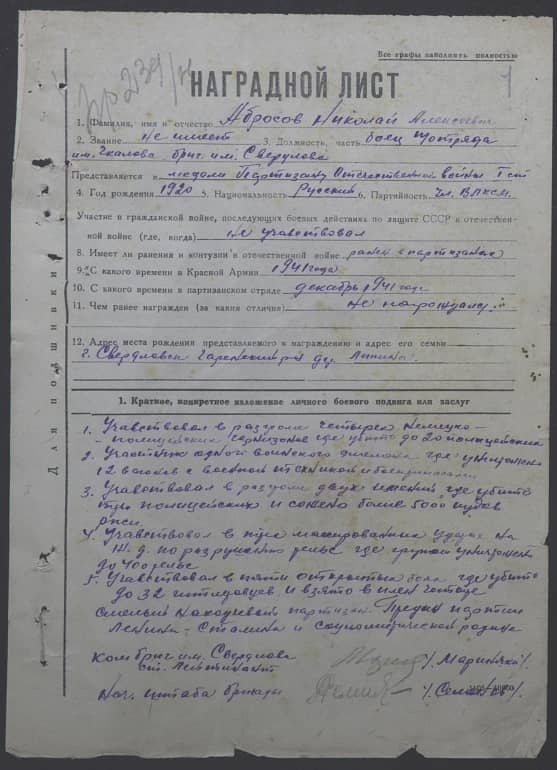 Все графы заполнять полностью
Пр 234/н
1
НАГРАДНОЙ ЛИСТ
1. Фамилия, имя и отчество Абросов Николай Алексеевич
2. Звание не имеет 3. Должность, часть боец отряда
им. Чкалова бриг. им. Свердлова
Представляется к медали Партизану Отечественной войны I ст
4. Год рождения 1920 5. Национальность Русский 6. Партийность чл. ВЛКСМ.
Участие в гражданской войне, последующих боевых действиях по защите СССР и отечествен-
ной войне (где, когда) не учавствовал
8. Имеет ли ранения и контузии в отечественной войне ранен в партизанах
9. С какого времени в Красной Армии 1941 года
10. С какого времени в партизанском отряде декабрь 1941 года
11. Чем ранее награжден (за какие отличия) не награждался.
12. Адрес места рождения представляемого к награждению и адрес его семьи
г. Свердловск
Для подшивки
1. Краткое, конкретное изложение личного боевого подвига или заслуг
1. Учавствовал в разгроме четырех немецко-
- полицейских гарнизонов где убито до 20 полицейских
2. Участник одной воинского эшелона где уничтожено
12 вагонов с военной техникой и боеприпасами
3. Учавствовал в разгроме двух имений где убито
полицейских и сожено более 5000 пудов
ржи.
4. Учавствовал в массированных ударах на
Ж. д. по разрушению рельс где группой уничтожено
до 400 рельс
5. Учавствовал в пяти открытых боях где убито
до 32 гитлеровцев и взято в плен четыре
смелый находчевый партизан. Предан партии
Ленина - Сталина и социолистической родине
Комбриг им. Свердлова
ст. Лейтинант /Мариняко/
Нач. штаба бригады